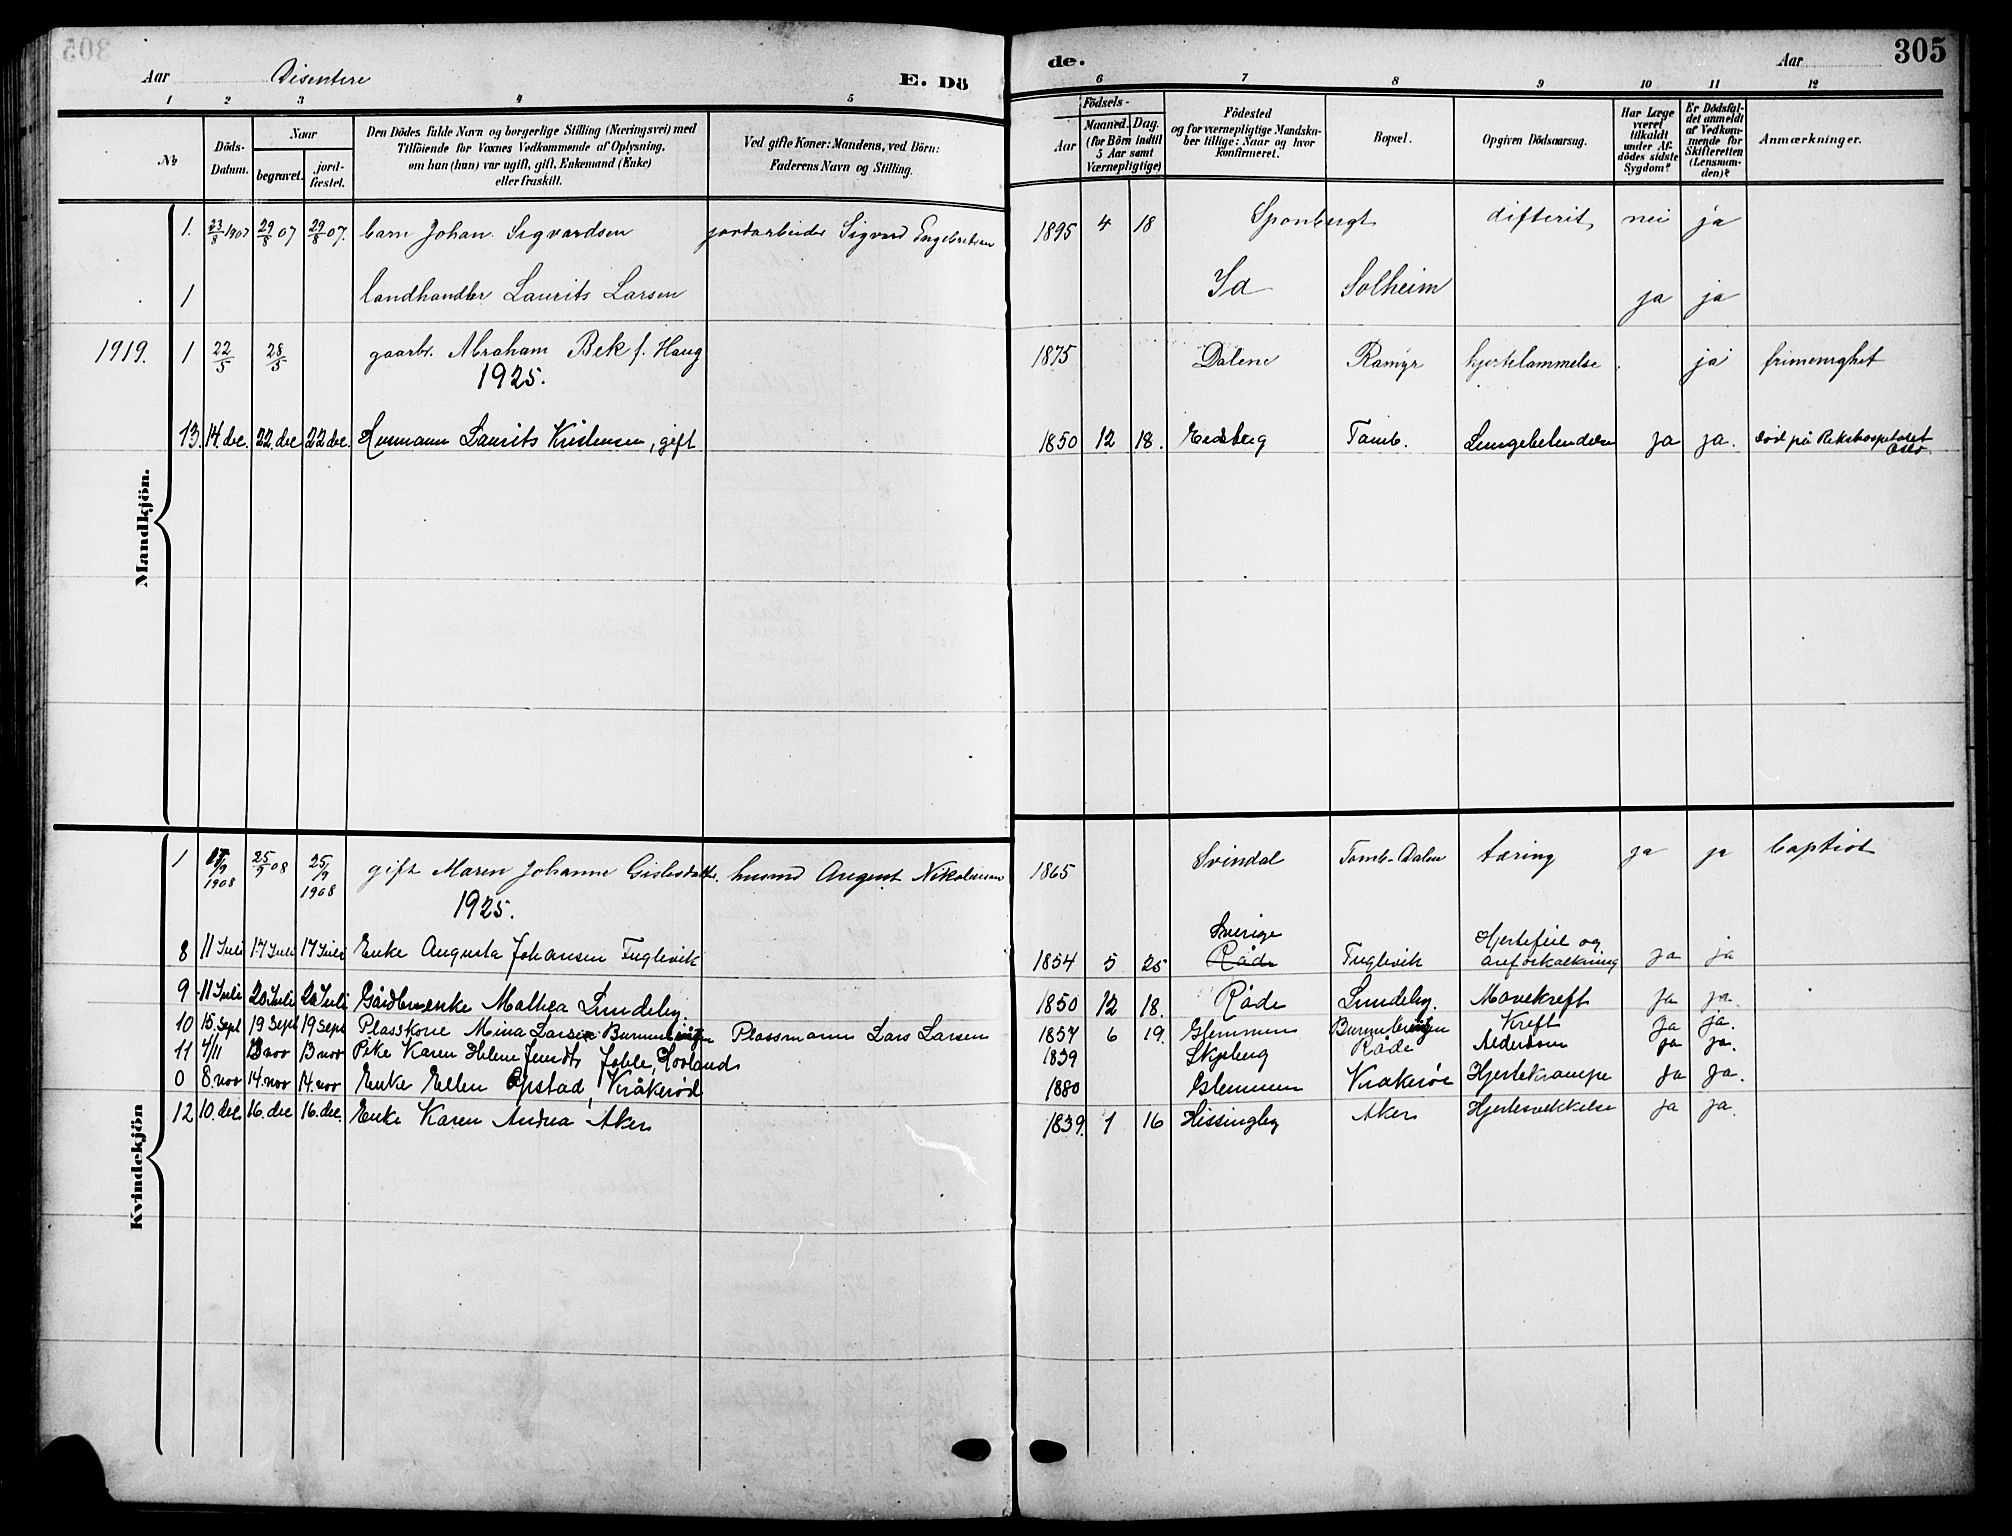 305
Aar Disentere E. Dö
de. Aar
1 2 3 4 5 6 7 8 9 10 11 12
No
Döds-Datum.
Naar
begravet. jord-fæstet.
Den Dödes fulde Navn og borgerlige Stilling (Næringsvei) med
Tilföiende for Voxnes Vedkommende af Oplysning,
om han (hun) var ugift, gift, Enkemand (Enke)
eller fraskilt.
Ved gifte Koner: Mandens, ved Börn:
Faderens Navn og Stilling.
Födsels-
Aar
Maaned. Dag.
(for Börn indtil
5 Aar samt
Værnepligtige)
Födested
og for værnepligtige Mandska-
ber tillige: Naar og hvor
konfirmeret.
Bopæl.
Opgiven Dödsaarsag.
Har Læge
været
tilkaldt
under Af-
dödes sidste
Sygdom?
Er Dödsfal-
det anmeldt
af Vedkom-
mende for
Skifteretten
(Lensman-
den)?
Anmærkninger.
Mandkjön.
1. 23/8 1907 29/8 07 29/8 07. barn Johan Sigvardsen jordarbeider Sigvard Engebretsen 1895 4 18 difterit nei ja
1 landhandler Laurits Larsen Id Solheim ja ja
1919. 1 22/5 28/5 gaarbr. Abraham Bek f. Haug 1875 Dalene hjertelammelse ja frimenighet
1925.
13. 14 dec. 22. dec 22 dec. Husmann Laurits Kristensen, gift 1850 12 18. Eidsberg Tomb. ja ja. død på Rikshospitalet Oslo.
Kvindekjön
1 17/9 1908 25/9 08 25/9 1908 gift Maren Johanne Gislesdatter. husmd August Nikolaisen 1865 Svindal Tomb-Dalen tæring ja ja baptist
1925.
8 11 Juli 17 Juli 17 Juli Enke Augusta Johansen Fuglevik 1854 5 25 Sverige Råde Fuglevik Hjertefeil og areforkalkning ja ja
9 11 Juli 20 Juli 20 Juli Gårdbr.enke Mathea Lundeby. 1850 12 18. Råde Lundeby. Mavekreft ja ja.
10 15. Sept 19 Sept 19 Sept Plasskone Mina Larsen Plassmann Lars Larsen 1857 6 19. Glemmen Kreft ja ja.
11 7/11 13 nov 13 nov Pike Karen Helene 1839 Skjeberg Råde Alderdom ja ja.
0 8. nov 14. nov 14. nov Enke Ellen Opstad, Kråkerød 1880 Glemmen Krakerøe Hjertekrampe ja ja.
12 10. dec. 16. dec 16. dec. Enke Karen Andrea Aker 1839. 1 16 Hissingby Aker Hjertesvekkelse ja ja.